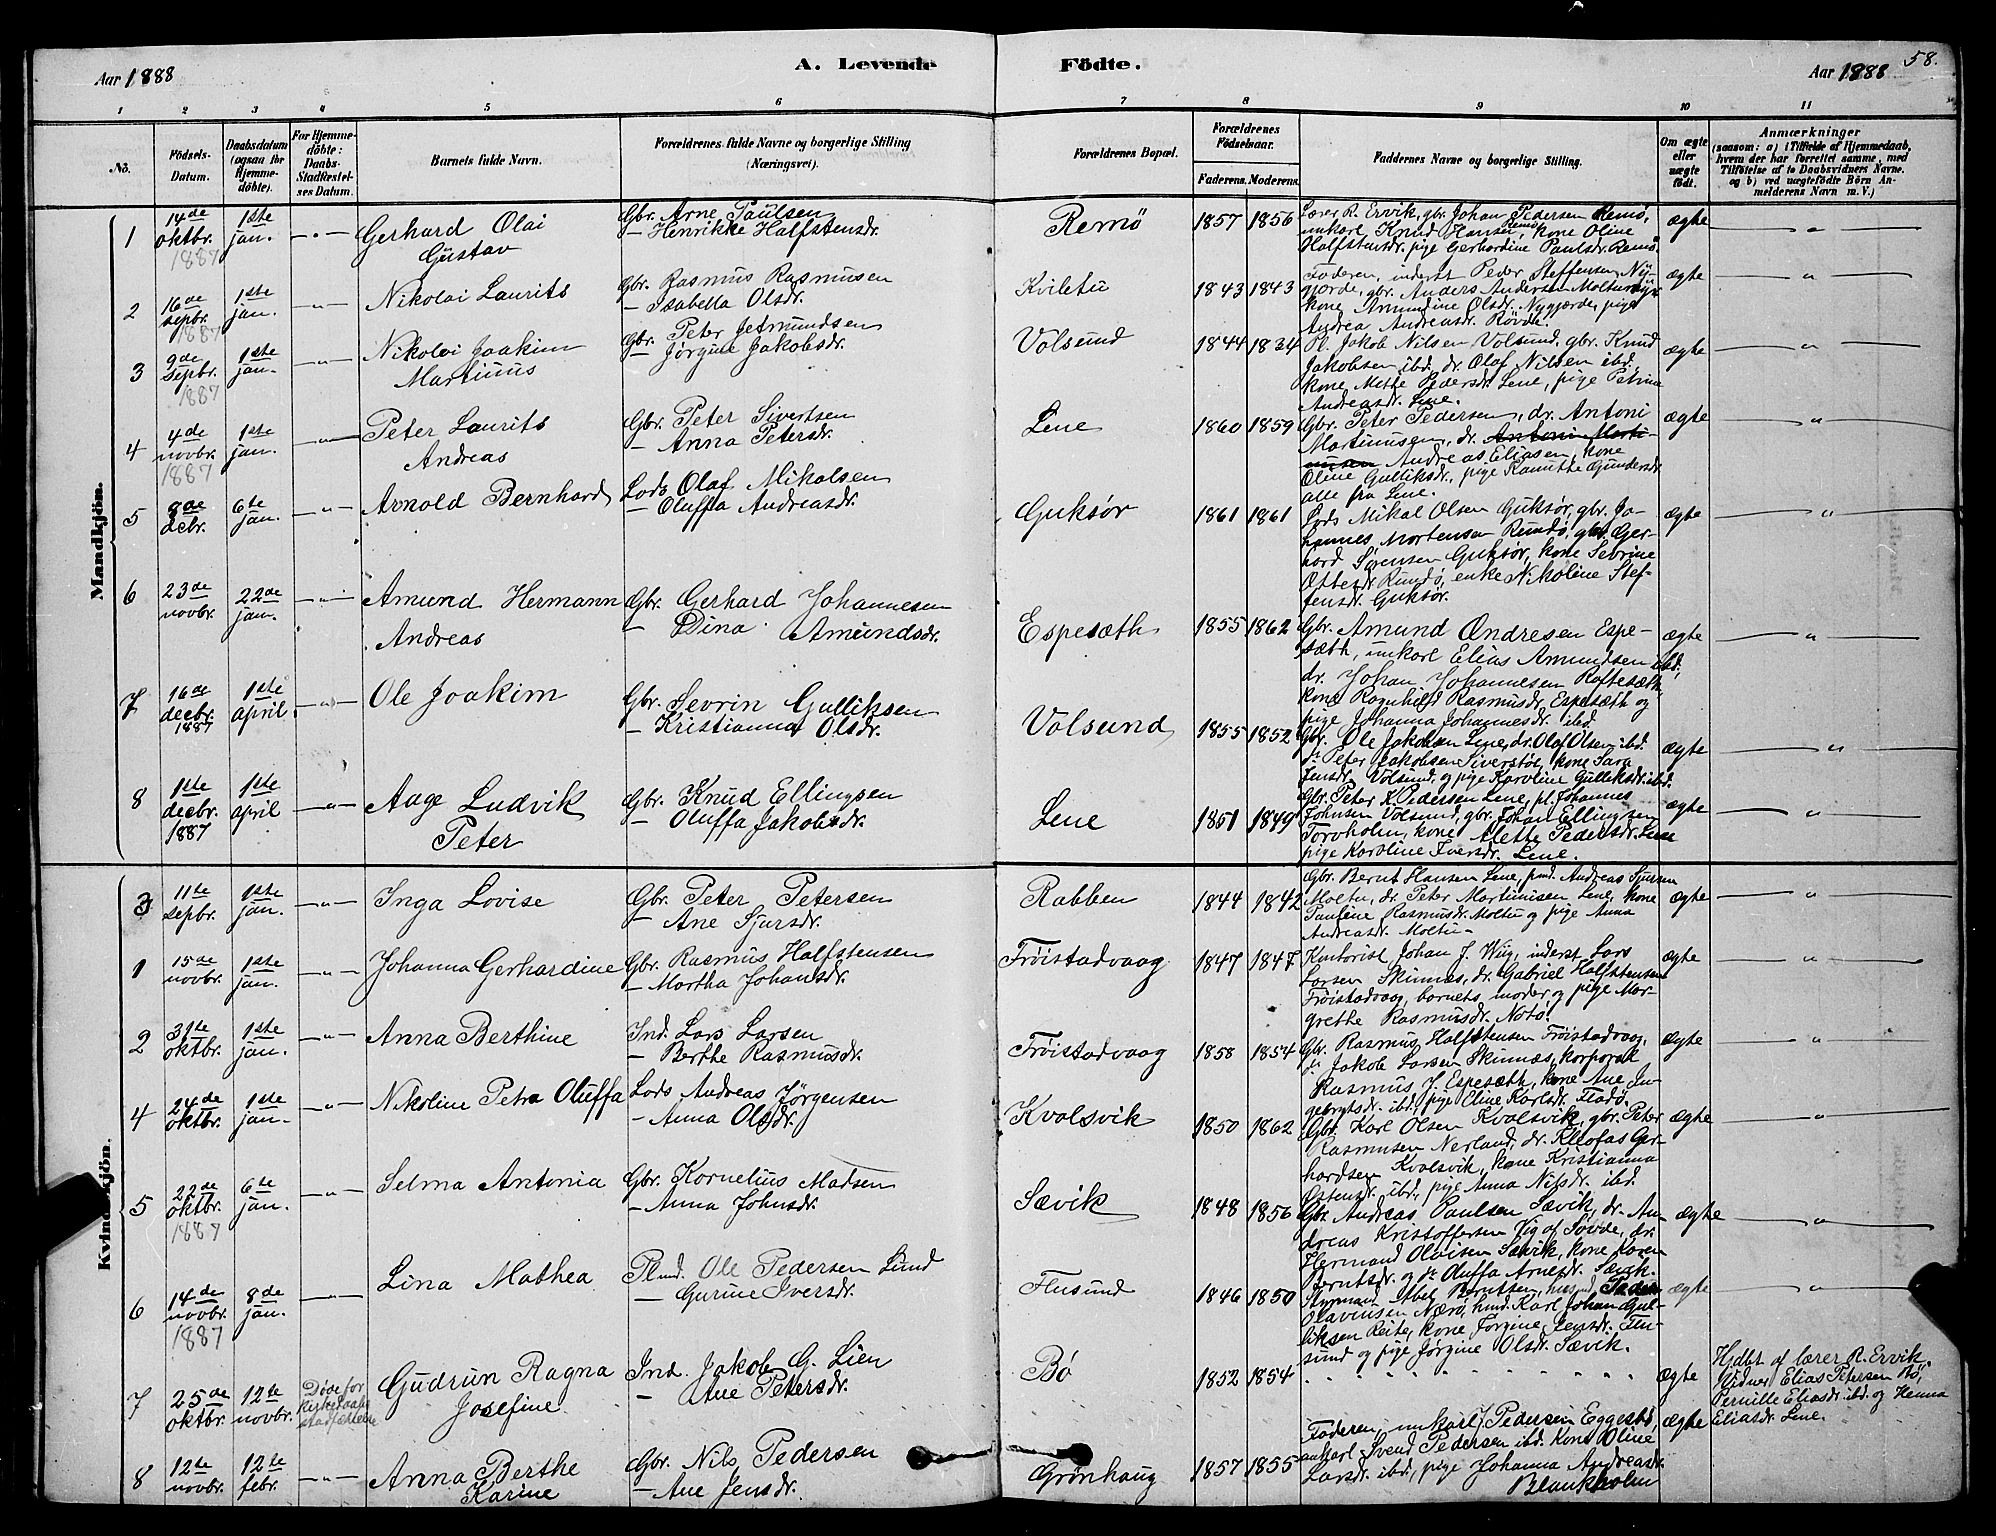 Aar 1888
A. Levende Födte.
Aar 1888
58.
1 2 3 4 5 6 7 8 9 10 11
No.
Födsels-Datum.
Daabsdatum (ogsaa for Hjemme-döbte).
For Hjemme-döbte: Daabs-Stadfæstel-ses Datum.
Barnets fulde Navn.
Forældrenes fulde Navne og borgerlige Stilling (Næringsvei).
Forældrenes Bopæl.
Forældrenes Födselsaar.
Faderens. Moderens.
Faddernes Navne og borgerlige Stilling.
Om ægte eller uægte födt.
Anmærkninger
(saasom: a) i Tilfælde af Hjemmedaab, hvem der har forrettet samme, med Tilföielse af to Daabsvidners Navne. og b) ved uægtefödte Börn An-melderens Navn m. V.)
Mandkjön.
1 14de oktbr. 1887 1ste jan. Gerhard Olai Gustav
Gbr. Arne Paulsen
— Henrikke Halfstensdr.
Remö 1857 1856
Lærer R. Ervik, gbr. Johan Pedersen Remö,
unkarl Knud Hansen Remö, kone Oline
Halfstensdr. pige Gerhardine Paulsdr. Remö.
ægte
2 16de sepbr. 1887 1ste jan. Nikolai Laurits
Gbr. Rasmus Rasmusen
— Isabella Olsdr.
Kviletu 1843 1843
Faderen, inderst Peder Steffensen Ny-
gjerde, gbr. Anders Andersen Moltumyr
kone Amundine Olsdr. Nygjerde, pige
Andrea Andreasdr. Rövde.
ægte
3 9de sepbr. 1887 1ste jan. Nikolai Joakim Martinus
Gbr. Peter Jetmundsen
— Jörgine Jakobsdr.
Volsund 1844 1834
Pl. Jakob Nilsen Volsund, gbr. Knud
Jakobsen ibd, dr. Olaf Nilsen ibd.
kone Mette Pedersdr. Lene, pige Petrina
Andreasdr. Lene.
ægte
4 4de novbr. 1887 1ste jan. Peter Laurits Andreas
Gbr. Peter Sivertsen
— Anna Petersdr.
Lene 1860 1859
Gbr. Peter Pedersen, dr. Antoni
Martinusen, dr. Antoni Marti-
nusen Andreas Eliasen, kone
Oline Gulliksdr., pige Ranuthe Gundersdr.
alle fra Lene.
ægte
5 8de decbr. 6te jan. Arnold Bernhard
Lods Olaf Mikalsen
— Oluffa Andreasdr.
Guksör 1861 1861
Lods Mikal Olsen Guksör, gbr. Jo-
hannes Mortensen Rundö, gbr. Ger-
hard Sörensen Guksör, kone Sebrine
Ottesdr Rundö, enke Nikoline Stef-
fensdr. Guksör.
ægte
6 23de novbr. 22de jan. Amund Hermann Andreas
Gbr. Gerhard Johannesen
— Dina Amundsdr.
Espesæth 1855 1862
Gbr. Amund Andresen Espe-
sæth, unkarl Elias Amundsen ibd,
dr. Johan Johannesen Roftesæth,
kone Ragnhild Rasmusdr. Espesæth og
pige Johanna Johannesdr. ibd.
ægte
7 16de decbr. 1887 1ste april Ole Joakim
Gbr. Sevrin Gulliksen
— Kristianna Olsdr.
Volsund 1855 1852
Gbr. Ole Jakobsen Lene, dr. Olaf Olsen ibd.
dr Peter Jakobsen Siverstöl, kone Sara
Jensdr. Volsund, og pige Karoline Gulleksdr. ibd.
ægte
8 1ste decbr. 1887 1ste april Aage Ludvik Peter
Gbr. Knud Ellingsen
— Oluffa Jakobsdr.
Lene 1851 1849
Gbr. Peter K. Pedersen Lene, pl. Johannes
Johnsen Volsund, gbr. Johan Ellingsen
Torvholm, kone Mette Pedersdr. Lene
pige Karoline Iversdr. Lene.
ægte
Kvindekjön.
3 11te sepbr. 1ste jan. Inga Lovise
Gbr. Peter Petersen
— Ane Sjursdr.
Rabben 1844 1842
Gbr. Bernt Hansen Lene, pmd. Andreas Sjursen
Moltu, dr. Peter Martinusen Lene, kone
Pauline Rasmusdr. Moltu og pige Anna
Andreasdr. Moltu
ægte
1 15de novbr. 1ste jan. Johanna Gerhardine
Gbr. Rasmus Halfstensen
— Martha Johansdr.
Fröistadvaag 1847 1847
Kontorist Johan J. Wiig, inderst Lars
Larsen Skinnes, dr. Gabriel Halfstensen
Fröistadvaag, barnets moder og pige Mar-
grethe Rasmusdr. Notö.
ægte
2 31te oktbr. 1ste jan. Anna Berthine
Ind. Lars Larsen
— Berthe Rasmusdr.
Fröistadvaag 1858 1854
Gbr. Rasmus Halfstensen Fröistadvaag,
dr Jakob Larsen Skinnes, korporal
Rasmus J. Espesæth, kone Ane In-
gebrgtsdr. ibd, pige Eline Karlsdr. Flaaö.
ægte
4 24de oktbr. 1ste jan. Nikoline Petra Oluffa
Lods Andreas Jörgensen
— Anna Olsdr.
Kvalsvik 1850 1862
Gbr. Karl Olsen Kvalsvik, gbr. Peter
Rasmusen Nerland, dr. Kleofas Ger-
hardsen Kvalsvik, kone Kristianna
Östensdr. ibd, pige Anna Nilsdr. ibd.
ægte
5 22de oktbr. 1887 6te jan. Selma Antonia
Gbr. Kornelius Madsen
— Anna Johnsdr.
Sævik 1848 1856
Gbr. Andreas Paulsen Sævik, dr. An-
dreas Kristoffersen Vig af Sövde, dr.
Hermand Olaisen Sævik, kone Karen
Berntsdr. og dr Oluffa Arnesdr. Sævik.
ægte
6 14de novbr. 1887 8de jan. Lina Mathea
Plmd. Ole Pedersen Lund
— Gurine Iversdr.
Flusund 1846 1850
Styrmand Abel Berntsen, husmd Peder
Olavinsen Nærö, hmd. Karl Johan Gul-
liksen Reite, kone Jorgine Jensdr. Flu-
sund og pige Jörgine Olsdr. Sævik.
ægte
7 25de oktbr. 12te novbr. Döde for kirkedaabs stadfæstelse
Gudrun Ragna Josefine
Ind. Jakob G. Lien
— Ane Petersdr.
Bö 1852 1854
ægte
Hjdbt. af lærer R. Ervik.
Vidner Elias Petersen Bö,
Pernille Eliasdr. ibd. og Hanna
Eliasdr. Lene.
8 12te novbr. 12te febr. Anna Berthe Karine
Gbr. Nils Pedersen
— Ane Jensdr.
Grönhaug 1857 1855
Faderen, unkarl J. Pedersen Eggesbö,
unkarl Svend Pedersen ibd. Kone Oline
Larsdr. ibd., pige Johanna Andreasdr.
Blankholm
ægte